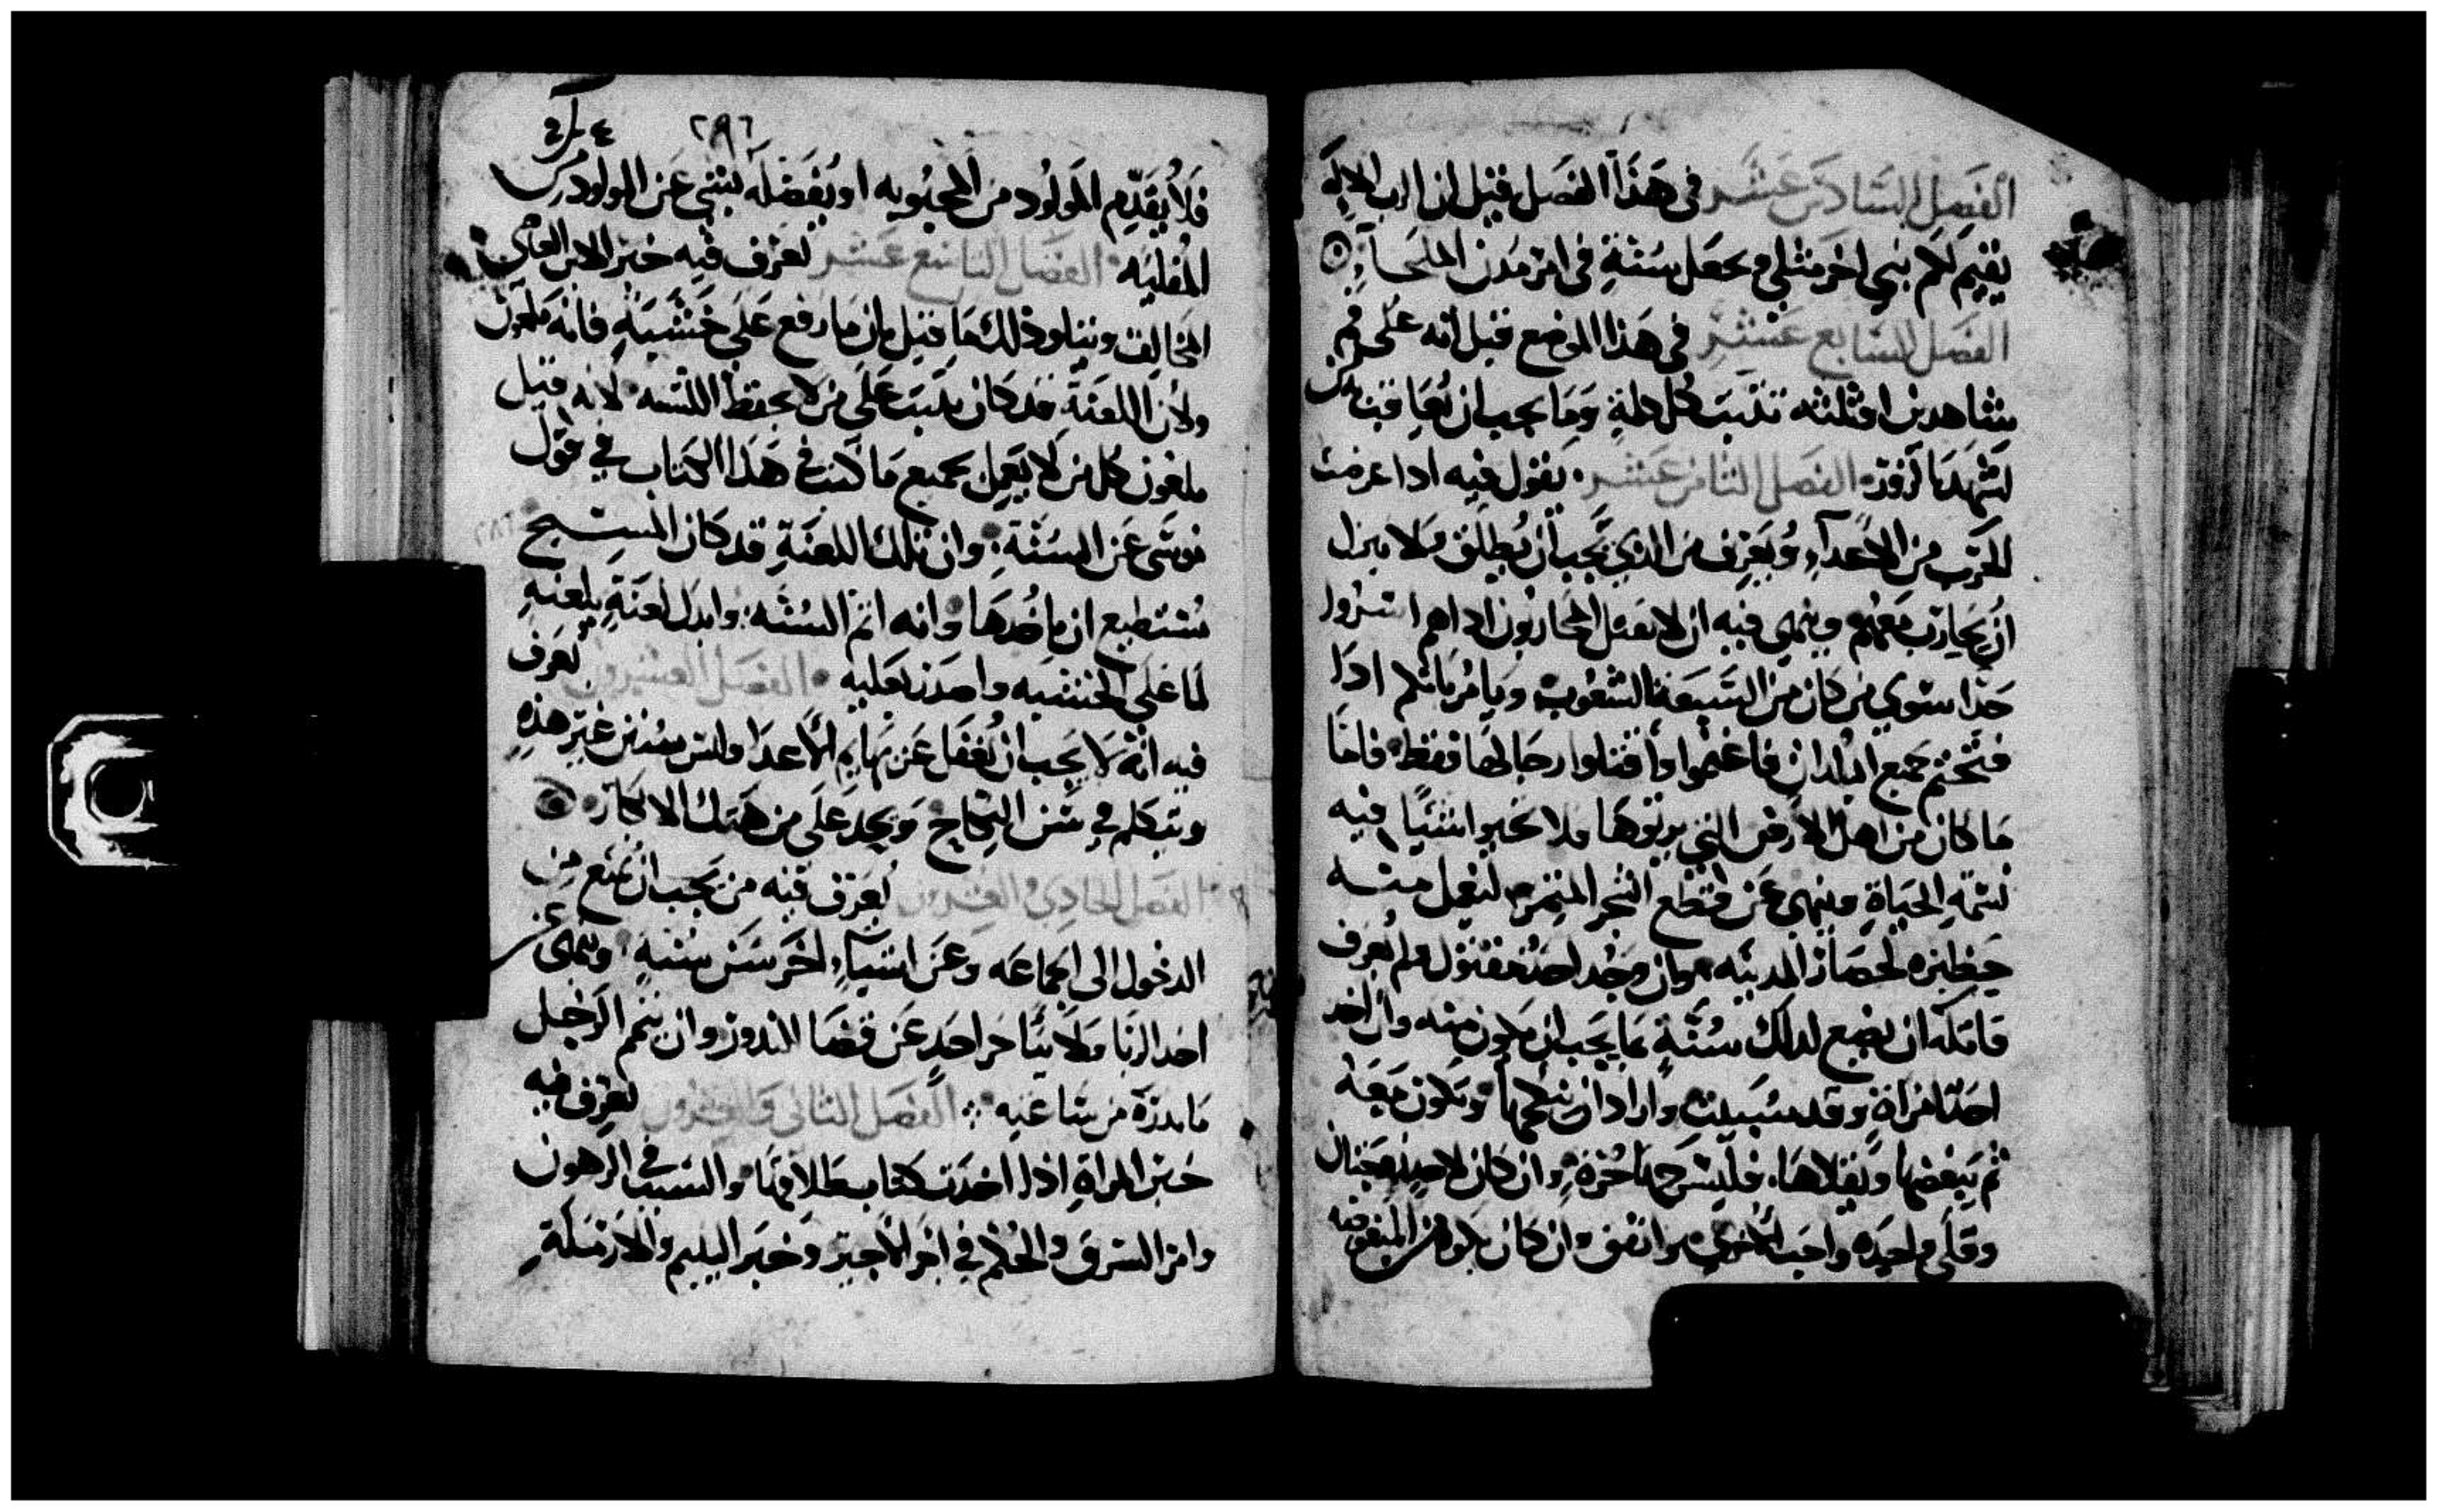 الفصل السادس عشر في هذا الفصل قيل ان الرب الاله
يقيم لكم نبي اخر مثلي ويجعل سنة في امر مدن الملجاء
الفصل السابع عشر في هذا الموضع قيل انه على فم
شاهدين او ثلثه تثبت كل كلمة وما يجب ان يعاقب من
لشهد بالزور الفصل الثامن عشر يقول فيه اذا عرضت
الحرب من الاعداء ويعرف من الذي يجب ان يطلق ولا يترك
ان يحارب معهم وينهي فيه ان لا يقتل المحاربون اذا هم اشتروا
حدا سوي من كان من السبعة الشعوب ويامر بانكم اذا
فتحتم جميع البلدان فاغنموا واقتلوا رجالها فقط فاما
ما كان من اهل الارض التي يرثوها فلا تحيوا شيا فيه
نسمة الحياة وينهي عن قطع الشجر المثمر ليعمل منه
حظيره لحصار المدينه وان وجد احد مقتول ولم يعرف
قاتله ان يضع لذلك سنة بما يجب ان يكون منه وان اخذ
احد امراة وقد سبيت واراد ان ينكحها وتكون معه
ثم يبغضها ويقلاها فليسرحها حرة وان كان لاحد زوجتان
وقلى واحده واحب الاخرى واتفق وان كان بكره من المبغوضه
٢٩٦
فلا يقدم المولود من المحبوبه او يفضله بشي عن المولود من
المقليه الفصل التاسع عشر تعرف فيه خبر الابن العاصي
المخالف ويتلو ذلك ما قيل بان ما رفع على خشبة فانه ملعون
ولان اللعنة قد كان يثبت على من لا يحفظ السنه لانه قيل
ملعون كل من لا يعمل بجميع ما كتب في هذا الكتاب في قول
موسى عن السنة وان تلك اللعنة قد كان المسيح
مستطيع ان ياخدها وانه اتم السنه وابدل لعنة بلعنة
لما على الخشبه واصعد عليه الفصل العشرون تعرف
فيه انه لا يجب ان يغفل عن بهايم الاعدا وليس سنن غير هذه
ويتكلم في سنن النكاح ويجد على من هتك الابكار
الفصل الحادي والعشرون يعرف فيه من يجب ان يمنع من
الدخول الى الجماعه وعن اشياء اخر سنن سنية وينهى عن
اخد الربا ولا يتاخر احد عن قضا الندور وان يتمم الرجل
ما ندره من ساعته الفصل الثاني والعشرون تعرف فيه
خبر المراة اذا اخدت كتاب طلاقها والسبب في الرهون
وامر السرق والحكم في اجر الاجير وخبر اليتيم والارملة